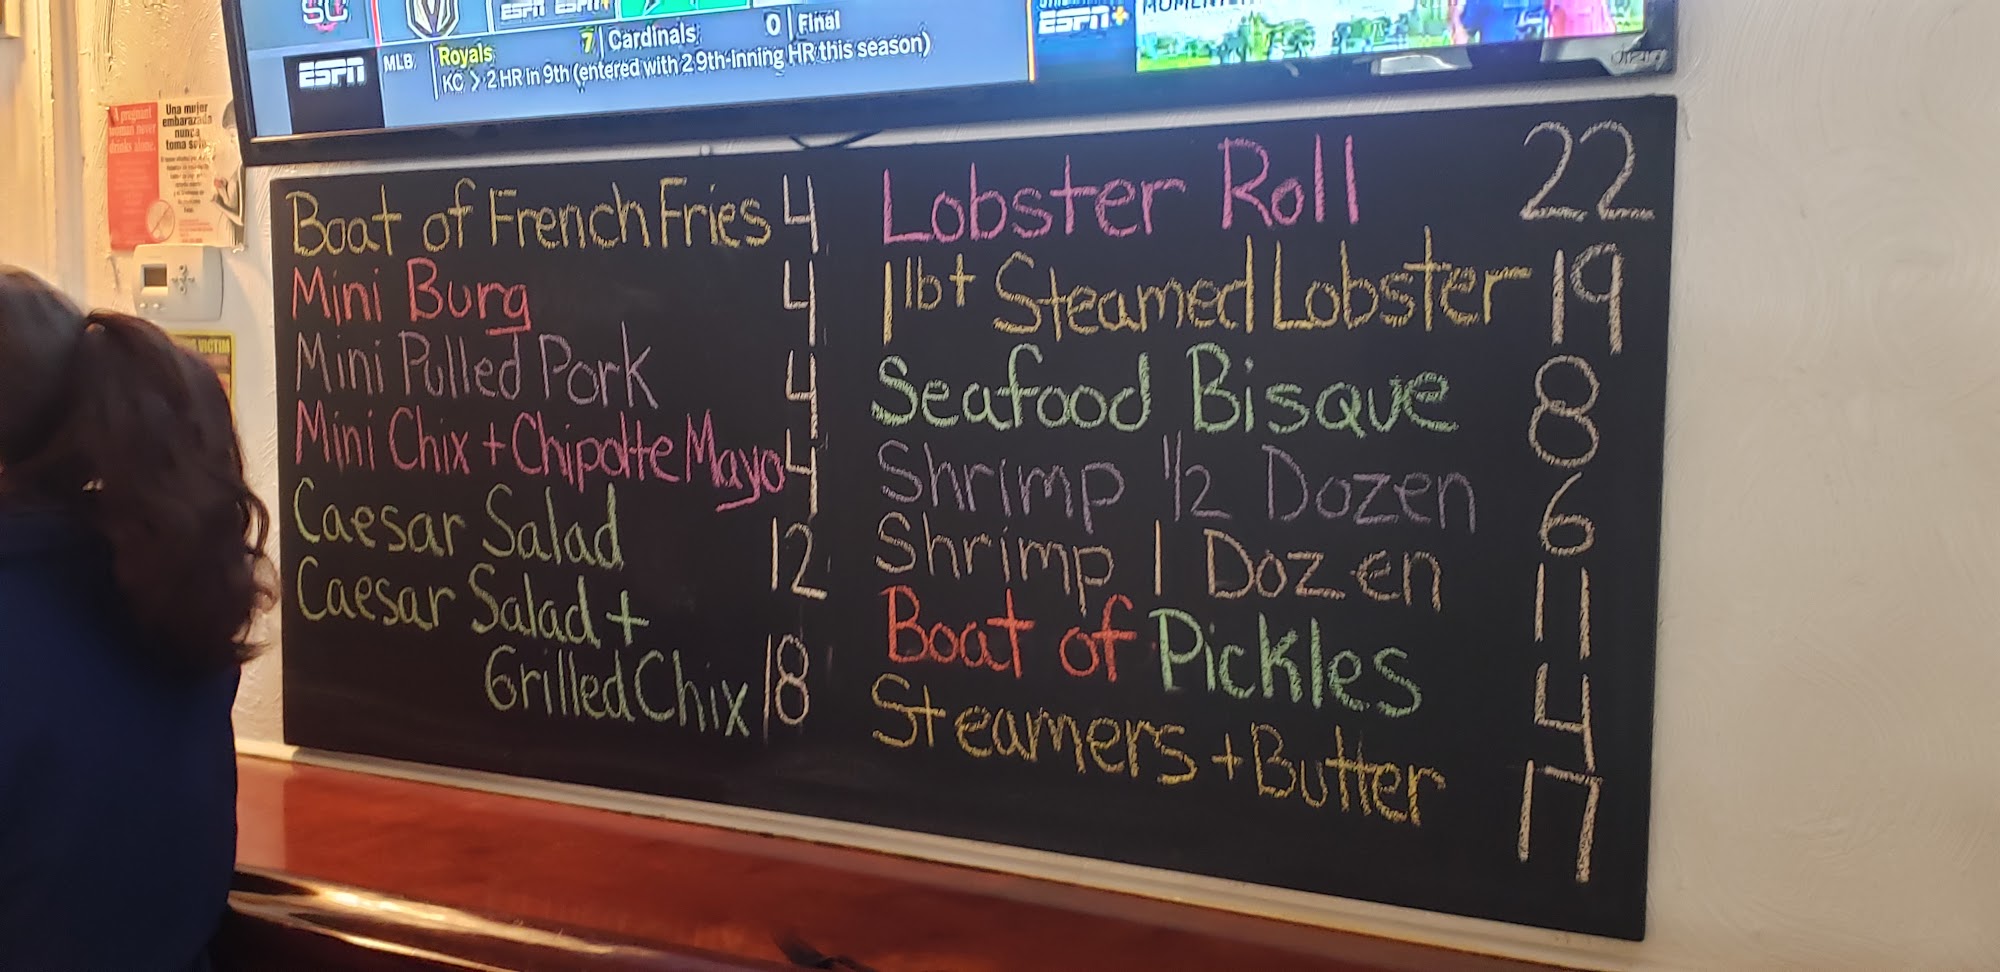 SC
ESPN ESPN+
ESPN
MLB
Royals 7 Cardinals 0 Final
KC > 2 HR in 9th (entered with 2 9th-inning HR this season)
ESPN+
A pregnant
woman never
drinks alone.
Una mujer
embarazada
nunca
toma sola
VICTIM
Boat of French Fries 4
Mini Burg 4
Mini Pulled Pork 4
Mini Chix + Chipotte Mayo 4
Caesar Salad 12
Caesar Salad +
Grilled Chix 18
Lobster Roll 22
1 lb+ Steamed Lobster 19
Seafood Bisque 8
Shrimp 1/2 Dozen 6
Shrimp 1 Dozen 11
Boat of Pickles 4
Steamers + Butter 17